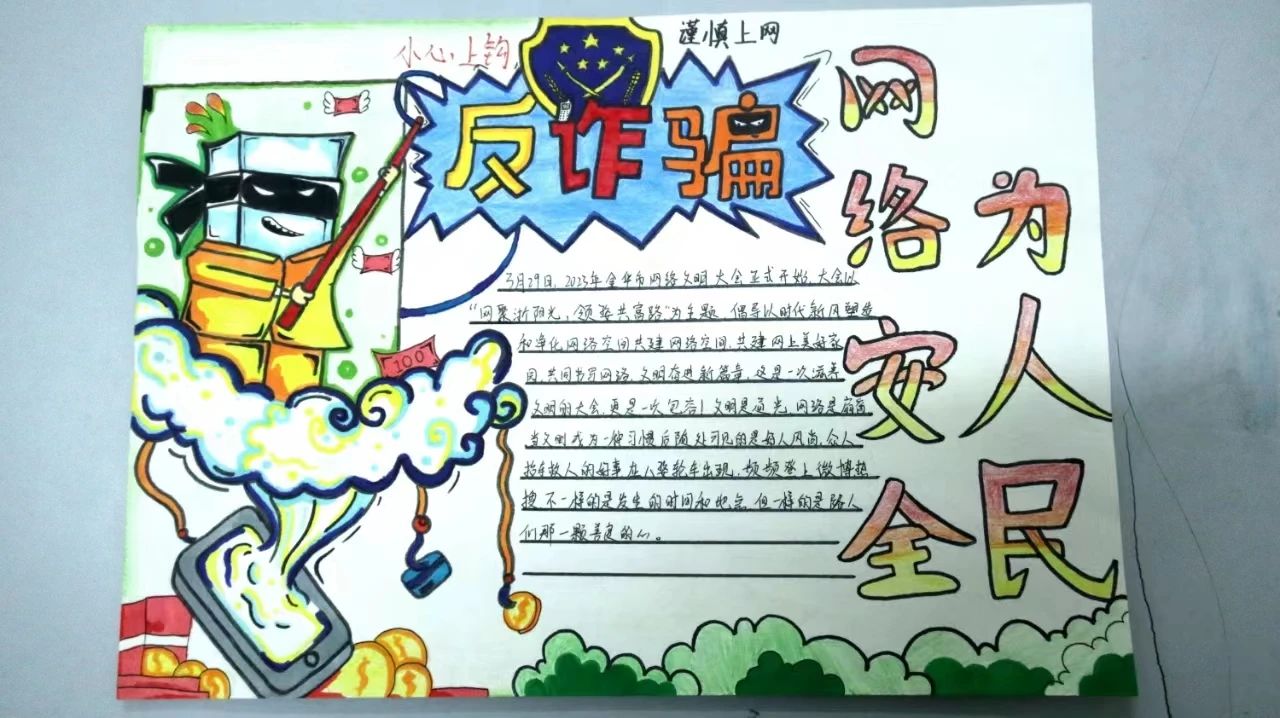 小心上钩
谨慎上网
反诈骗
网络安全
为人民
100
3月29日，2023年金华市网络文明大会正式开始，大会以
“网聚浙阳光，领卷共富路”为主题，倡导以时代新风塑造
和净化网络空间共建网络空间，共建网上美好家
园，共同书写网络文明奋进新篇章，这是一次
文明的大会，更是一次包容！文明是道光，网络是
当文明成为一种习惯后随处可见的是好人风尚，众人
抬车救人的好事在八婺轮车出现，频频登上微博热
搜不一样的是发生的时间和地点，但一样的是路人
们那一颗善良的心。